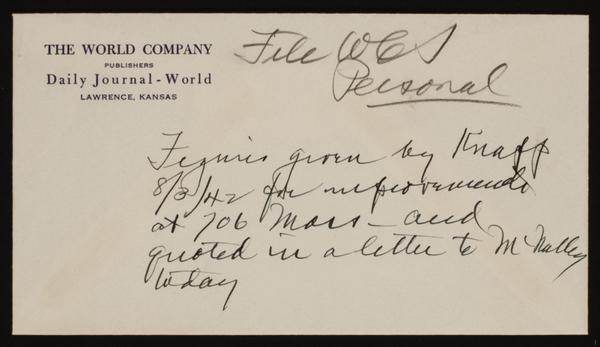 THE WORLD COMPANY
PUBLISHERS
Daily Journal-World
LAWRENCE, KANSAS
File WCS
Personal
Figures given by Knapp
8/3/42 for improvements
at 706 Mass - and
quoted in a letter to McNalley
today